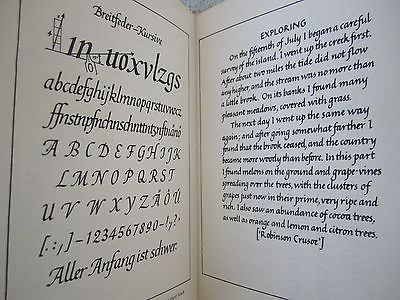 Breitfeder-Kursive
abcdefghijklmnopqrstuvwxyz
A B C D E F G H I J K L M
N O P Q R S T
U V W X Y Z Ä Ö Ü
[.:,] - 1234567890 - (;?!
Aller Anfang ist schwer.
EXPLORING
On the fifteenth of July I began a careful
survey of the island. I went up the creek first.
After about two miles the tide did not flow
any higher, and the stream was no more than
a little brook. On its banks I found many
pleasant meadows, covered with grass.
The next day I went up the same way
again; and after going somewhat farther I
found that the brook ceased, and the country
became more woody than before. In this part I
found melons on the ground and grape-vines
spreading over the trees, with the clusters of
grapes just now in their prime, very ripe and
rich. I also saw an abundance of cocoa trees,
as well as orange and lemon and citron trees.
['Robinson Crusoe']